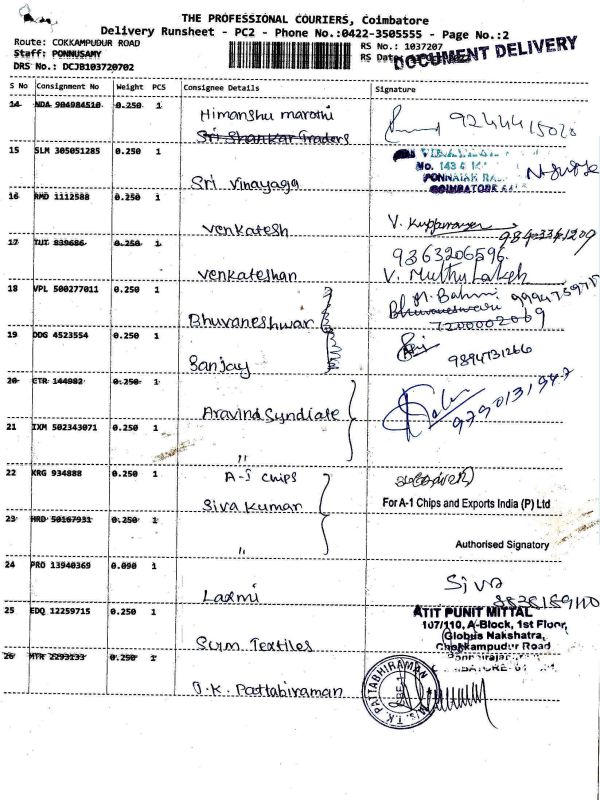 THE PROFESSIONAL COURIERS, Coimbatore
Delivery Runsheet - PC2 - Phone No.:0422-3505555 - Page No.:2
Route: COKKAMPUDUR ROAD
Staff: PONNUSAMY
DRS No.: DCJB103720702
RS No.: 1037207
RS Dat
DOCUMENT DELIVERY
S No Consignment No Weight PCS Consignee Details Signature
14 NDA 904984510 0.250 1 Himanshu marothi
Sri Shankar Traders
9244415020
15 SLM 305051285 0.250 1 Sri Vinayaga
No. 143
PONNAIAH RA
COIMBATORE
16 RMD 1112588 0.250 1 Venkatesh V. Kuppurayer
17 TUT 839686 0.250 1 Venkateshan 9363206596
V. Muthu Laksh
18 VPL 500277011 0.250 1 Bhuvaneshwar
Bhuvaneswari
7200002069
19 DDG 4523554 0.250 1 Sanjay
9894731266
20 CTR 144982 0.250 1 Aravind Syndiate
9790131947
21 IXM 502343071 0.250 1 "
22 KRG 934888 0.250 1 A-1 chips
Siva kumar
For A-1 Chips and Exports India (P) Ltd
23 HRD 50167931 0.250 1 "
Authorised Signatory
24 PRO 13940369 0.090 1 Laxmi Siva
25 EDQ 12259715 0.250 1 Sum Textiles
ATIT PUNIT MITTAL
107/110, A-Block, 1st Floor,
Globus Nakshatra,
Chokkampudur Road
26 MTR 2293133 0.250 1 T.K. Pattabiraman
M/S. T.K PATTABHIRAMAN